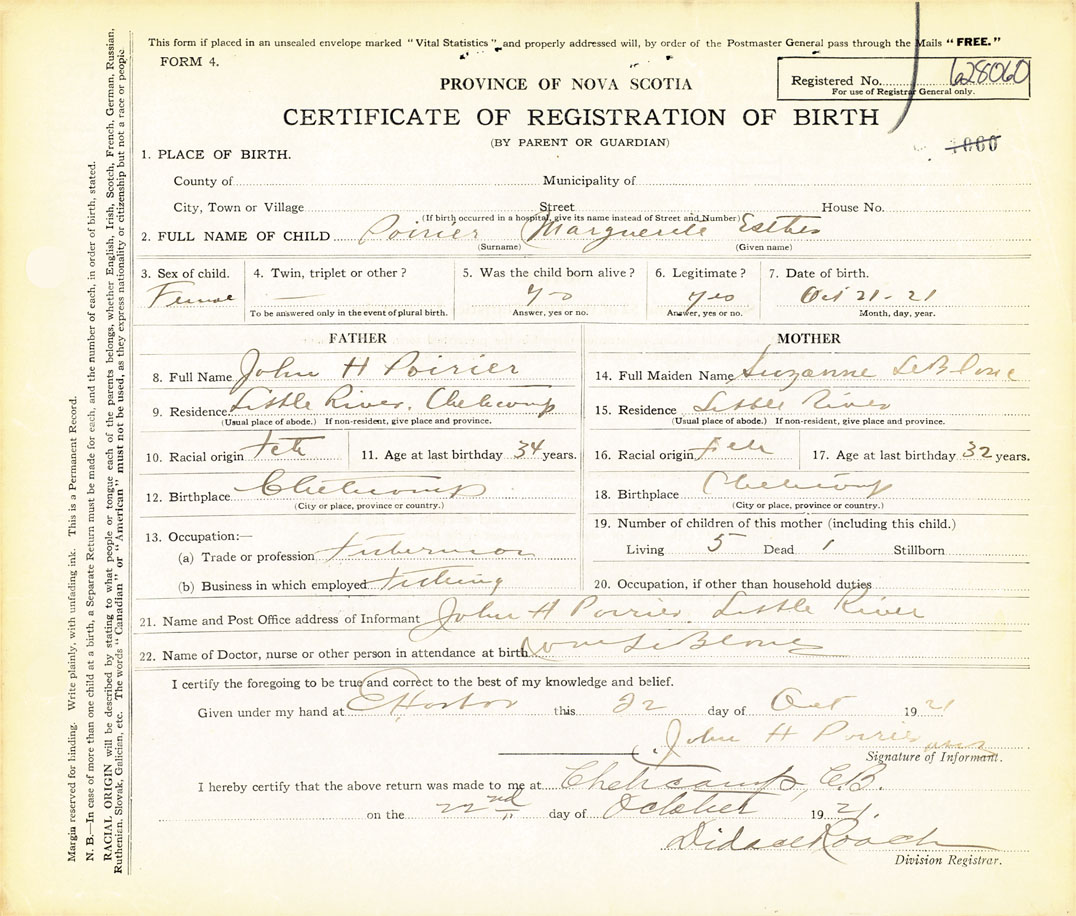 This form if placed in an unsealed envelope marked "Vital Statistics", and properly addressed will, by order of the Postmaster General pass through the Mails "FREE."
FORM 4.
PROVINCE OF NOVA SCOTIA
Registered No. 628060
For use of Registrar General only.
CERTIFICATE OF REGISTRATION OF BIRTH
(BY PARENT OR GUARDIAN)
1. PLACE OF BIRTH.
County of Municipality of
City, Town or Village Street House No.
(If birth occurred in a hospital, give its name instead of Street and Number)
2. FULL NAME OF CHILD Poirier Marguerite Esther
(Surname) (Given name)
3. Sex of child. 4. Twin, triplet or other? 5. Was the child born alive? 6. Legitimate? 7. Date of birth.
— yes Oct 21-21
To be answered only in the event of plural birth. Answer, yes or no. Answer, yes or no. Month, day, year.
FATHER MOTHER
8. Full Name John H Poirier 14. Full Maiden Name Suzanne LeBlanc
9. Residence Little River, Cheticamp 15. Residence Little River
(Usual place of abode.) If non-resident, give place and province. (Usual place of abode.) If non-resident, give place and province.
10. Racial origin 11. Age at last birthday 34 years. 16. Racial origin 17. Age at last birthday 32 years.
12. Birthplace Cheticamp 18. Birthplace Cheticamp
(City or place, province or country.) (City or place, province or country.)
13. Occupation:— 19. Number of children of this mother (including this child.)
(a) Trade or profession Fisherman Living 5 Dead 1 Stillborn
(b) Business in which employed Fishing 20. Occupation, if other than household duties
21. Name and Post Office address of Informant John H Poirier Little River
22. Name of Doctor, nurse or other person in attendance at birth LeBlanc
I certify the foregoing to be true and correct to the best of my knowledge and belief.
Given under my hand at E Harbor this 22 day of Oct 1921
John H Poirier
Signature of Informant.
I hereby certify that the above return was made to me at Cheticamp, C.B.
on the 22nd day of October 1921.
Didace Roach
Division Registrar.
Margin reserved for binding. Write plainly, with unfading ink. This is a Permanent Record.
N. B.—In case of more than one child at a birth, a Separate Return must be made for each, and the number of each, in order of birth, stated.
RACIAL ORIGIN will be described by stating to what people or tongue each of the parents belongs, whether English, Irish, Scotch, French, German, Russian,
Ruthenian, Slovak, Galician, etc. The words "Canadian" or "American" must not be used, as they express nationality or citizenship but not a race or people